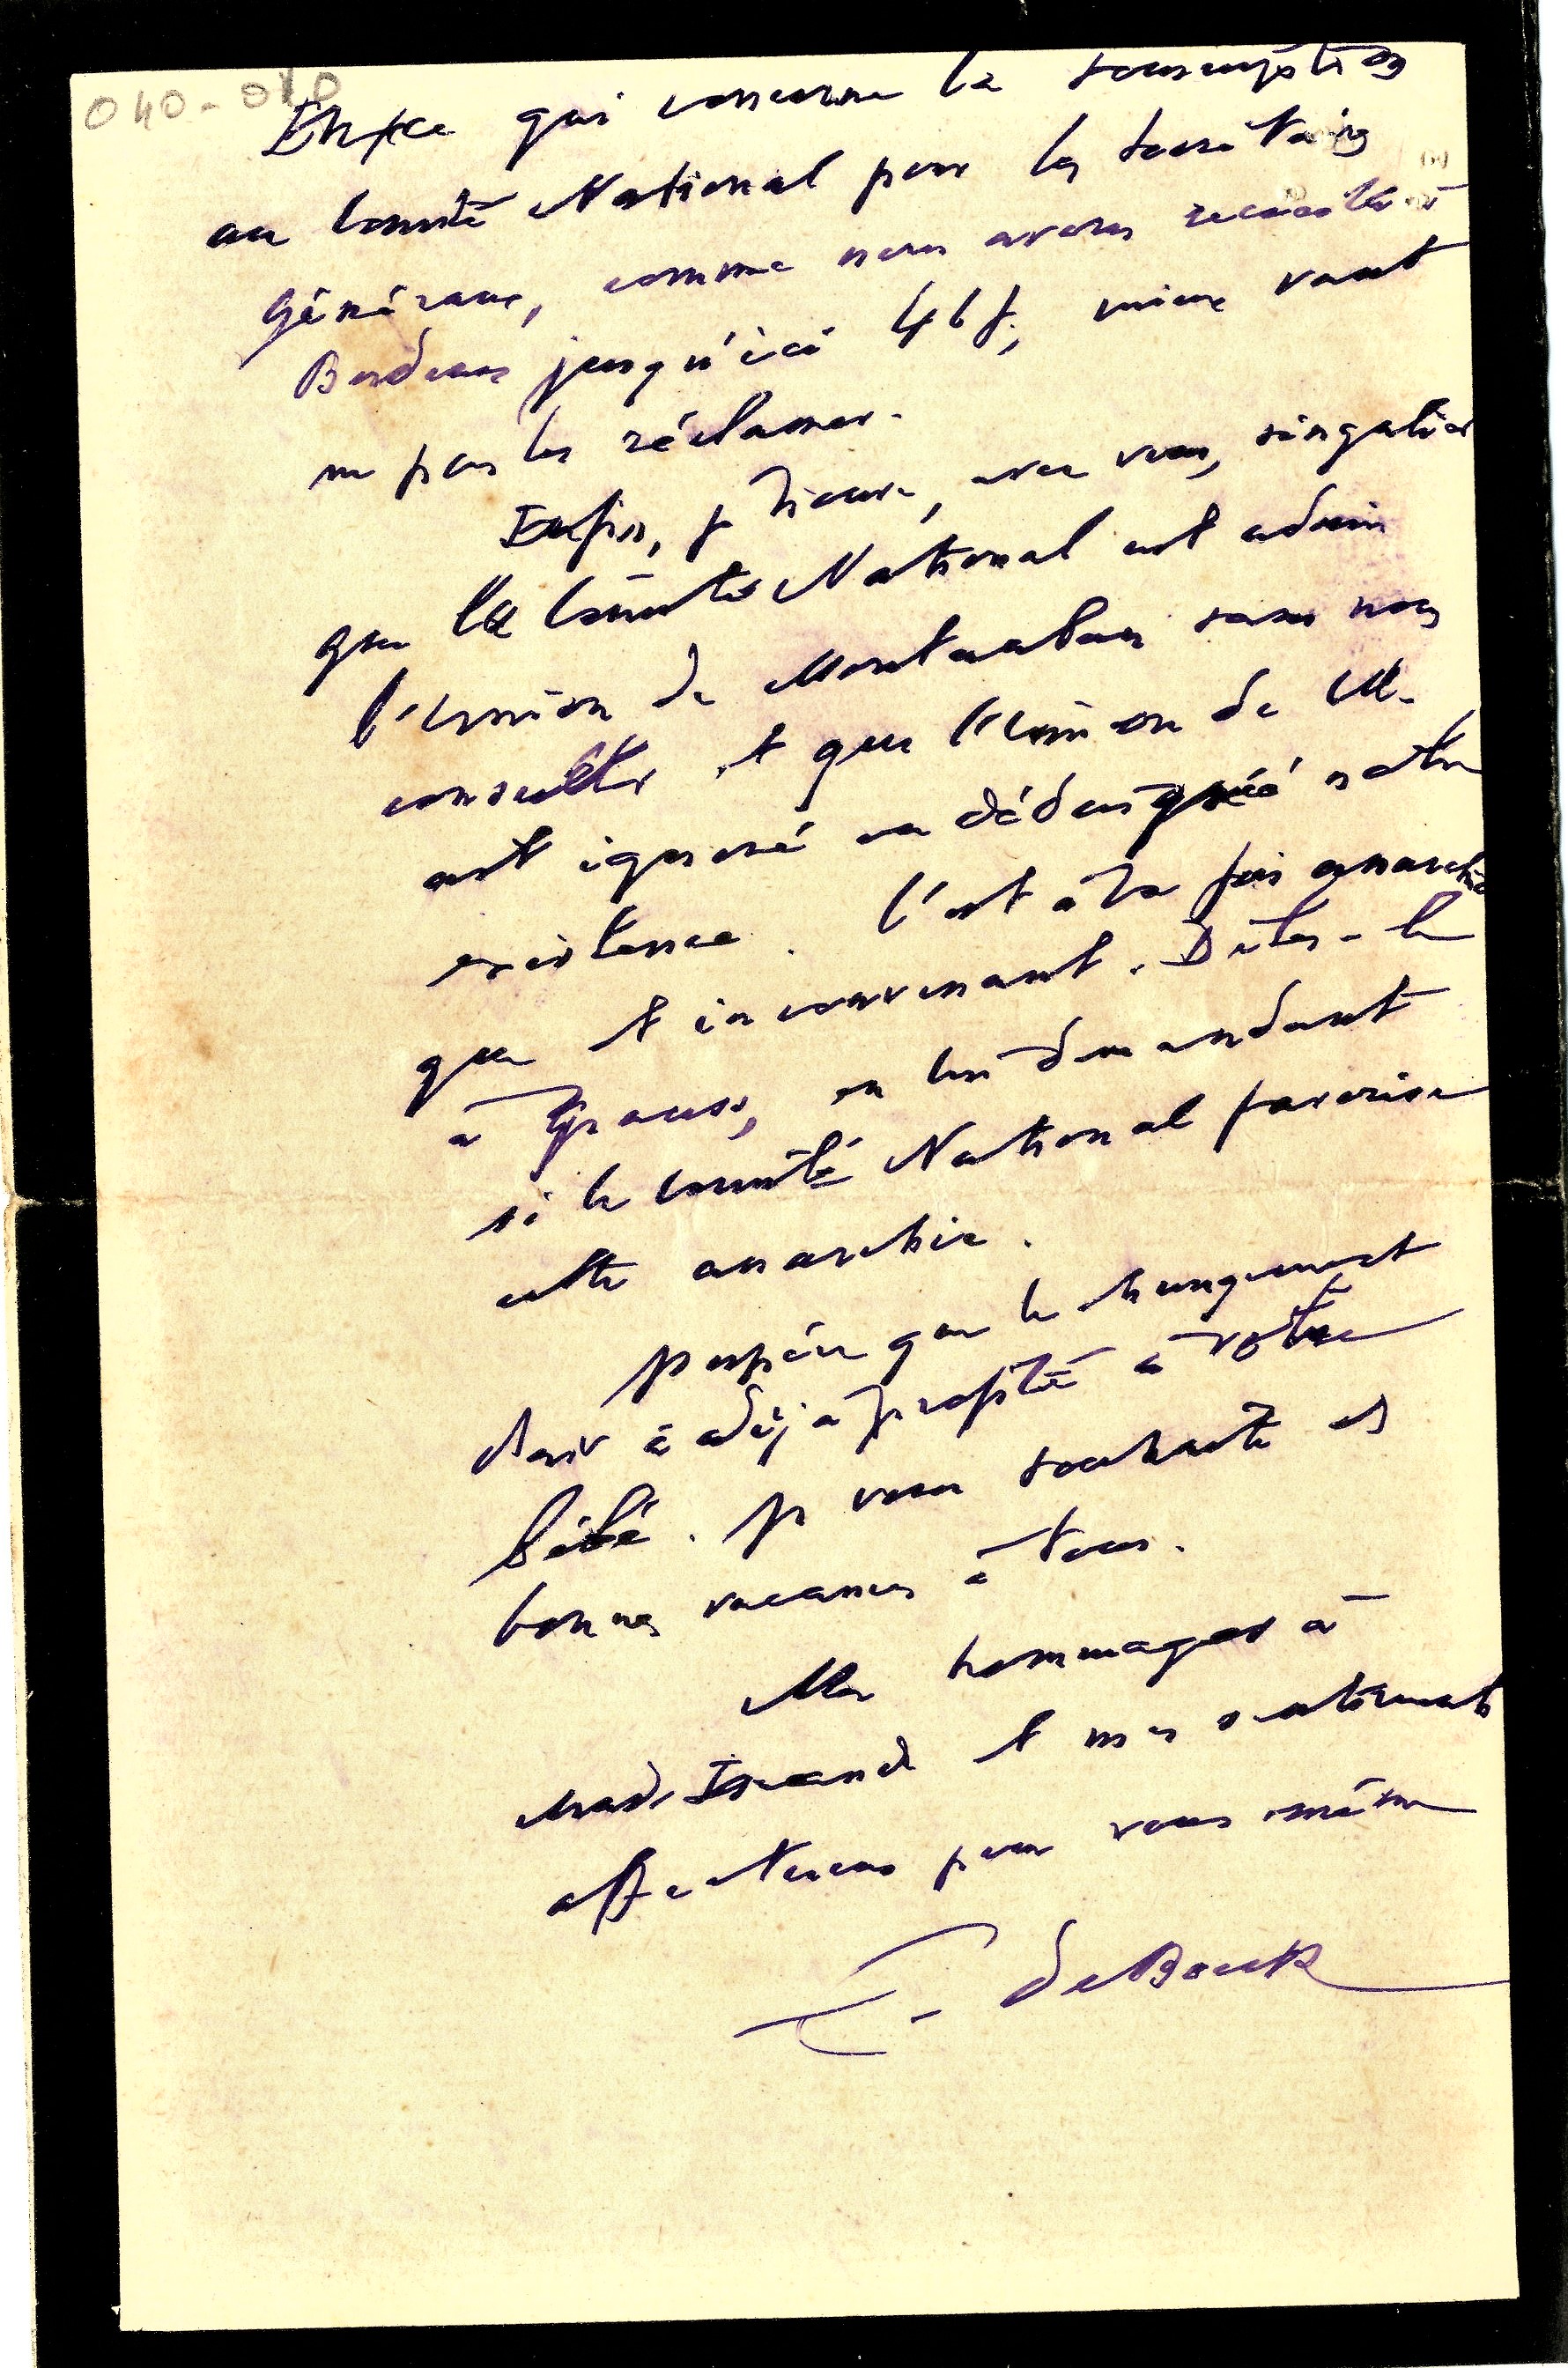 040-010
En ce qui concerne la souscription
au Comité National pour les Secrétaires
Généraux, comme nous avons recueilli à
Bordeaux jusqu'ici 46 f, mieux vaut
ne pas les réclamer.
Enfin, je trouve, avec vous, singulier
que le Comité National ait admis
l'Union de Montauban sans nous
consulter et que l'Union de M.
ait ignoré ou dédaigné notre
existence. C'est à la fois anarchi
que et inconvenant. Dites-le
à, en lui demandant
si le Comité National favorise
cette anarchie.
J'espère que le changement
d'air a déjà profité à votre
bébé. Je vous souhaite
bonnes vacances à tous.
Mes hommages à
Made et mes sentiments
affectueux pour vous même
de Boeck